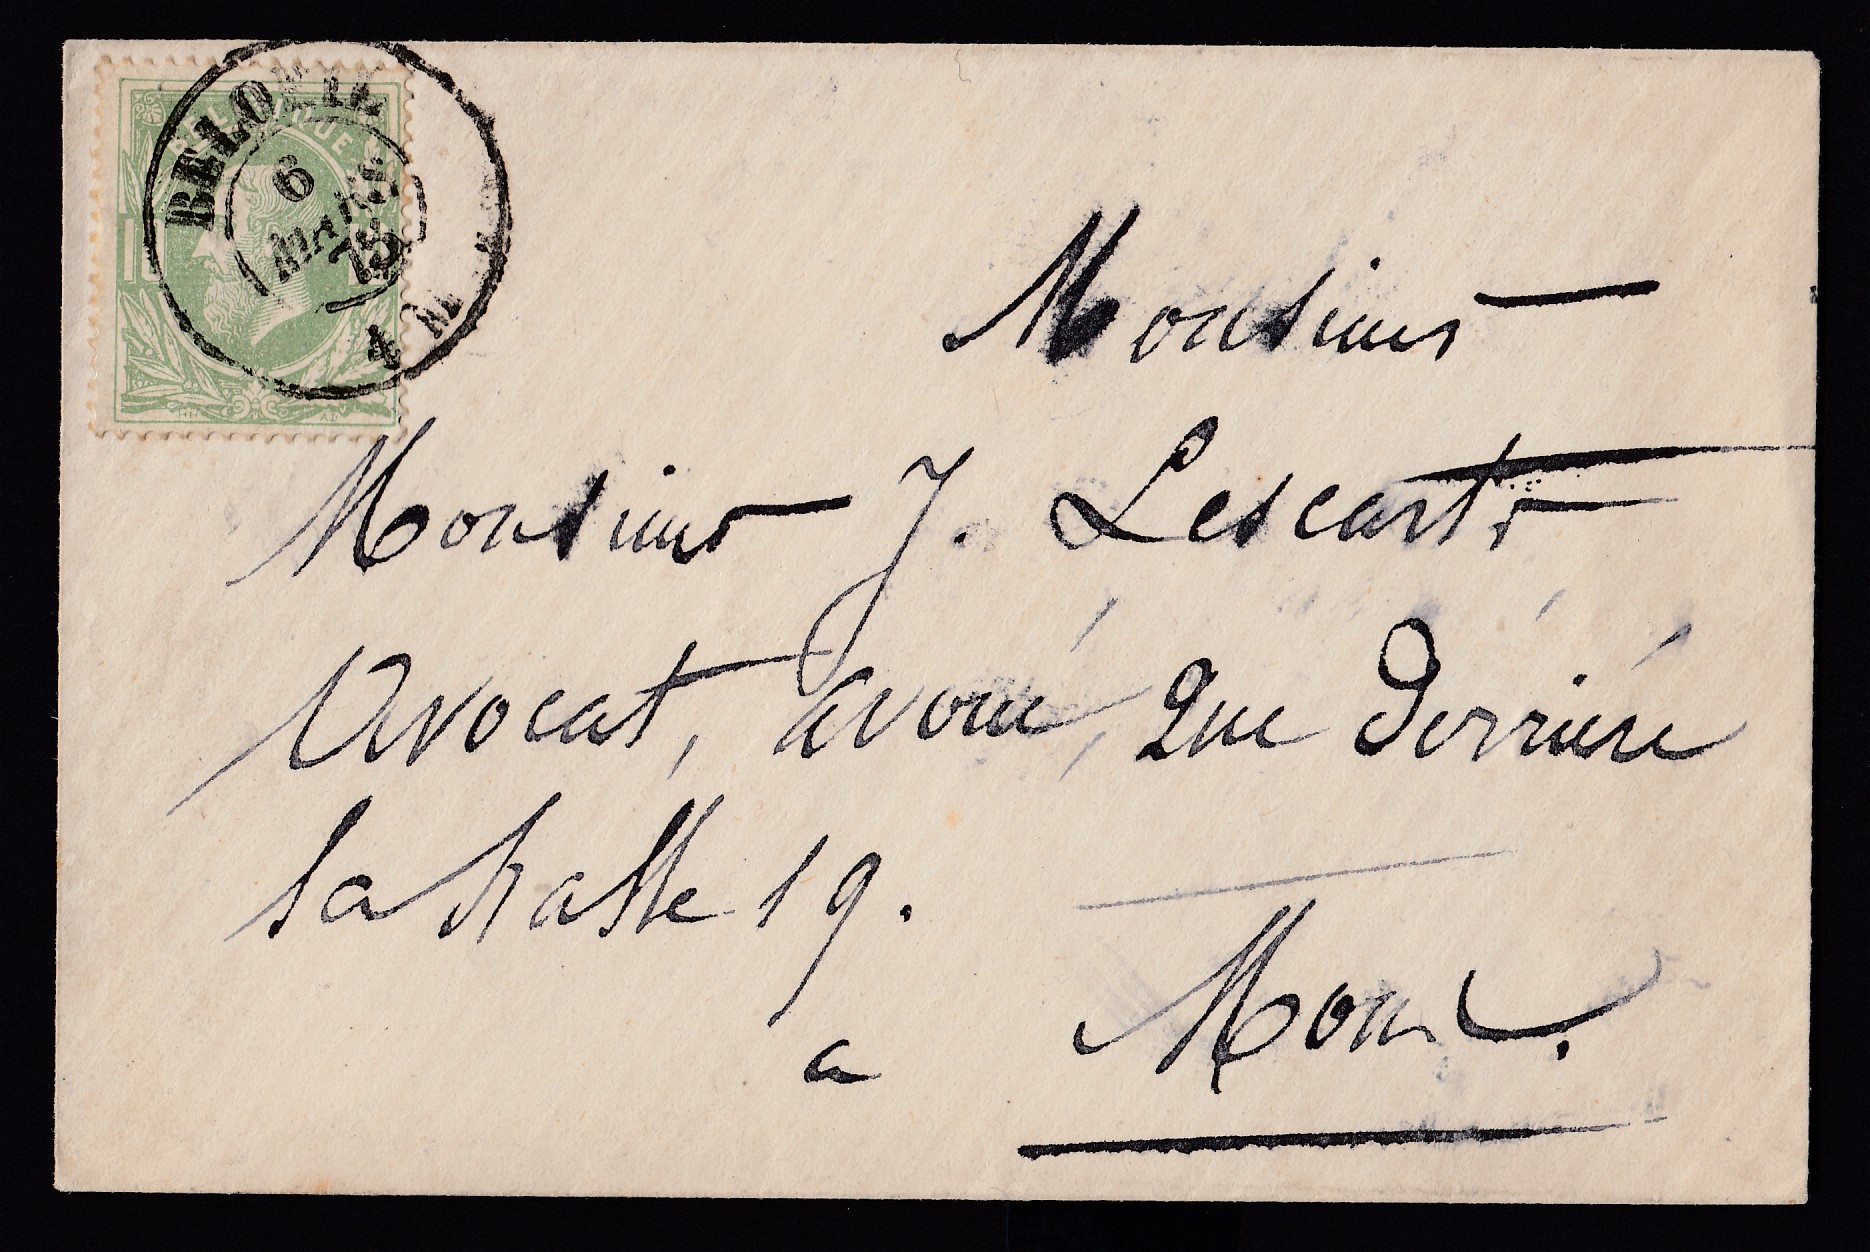 BELGIQUE
10
BELOEIL
6
MARS
75
4
Monsieur
Monsieur J. Lescarts
Avocat, avoué, Rue Derrière
la halle 19.
a Mons.